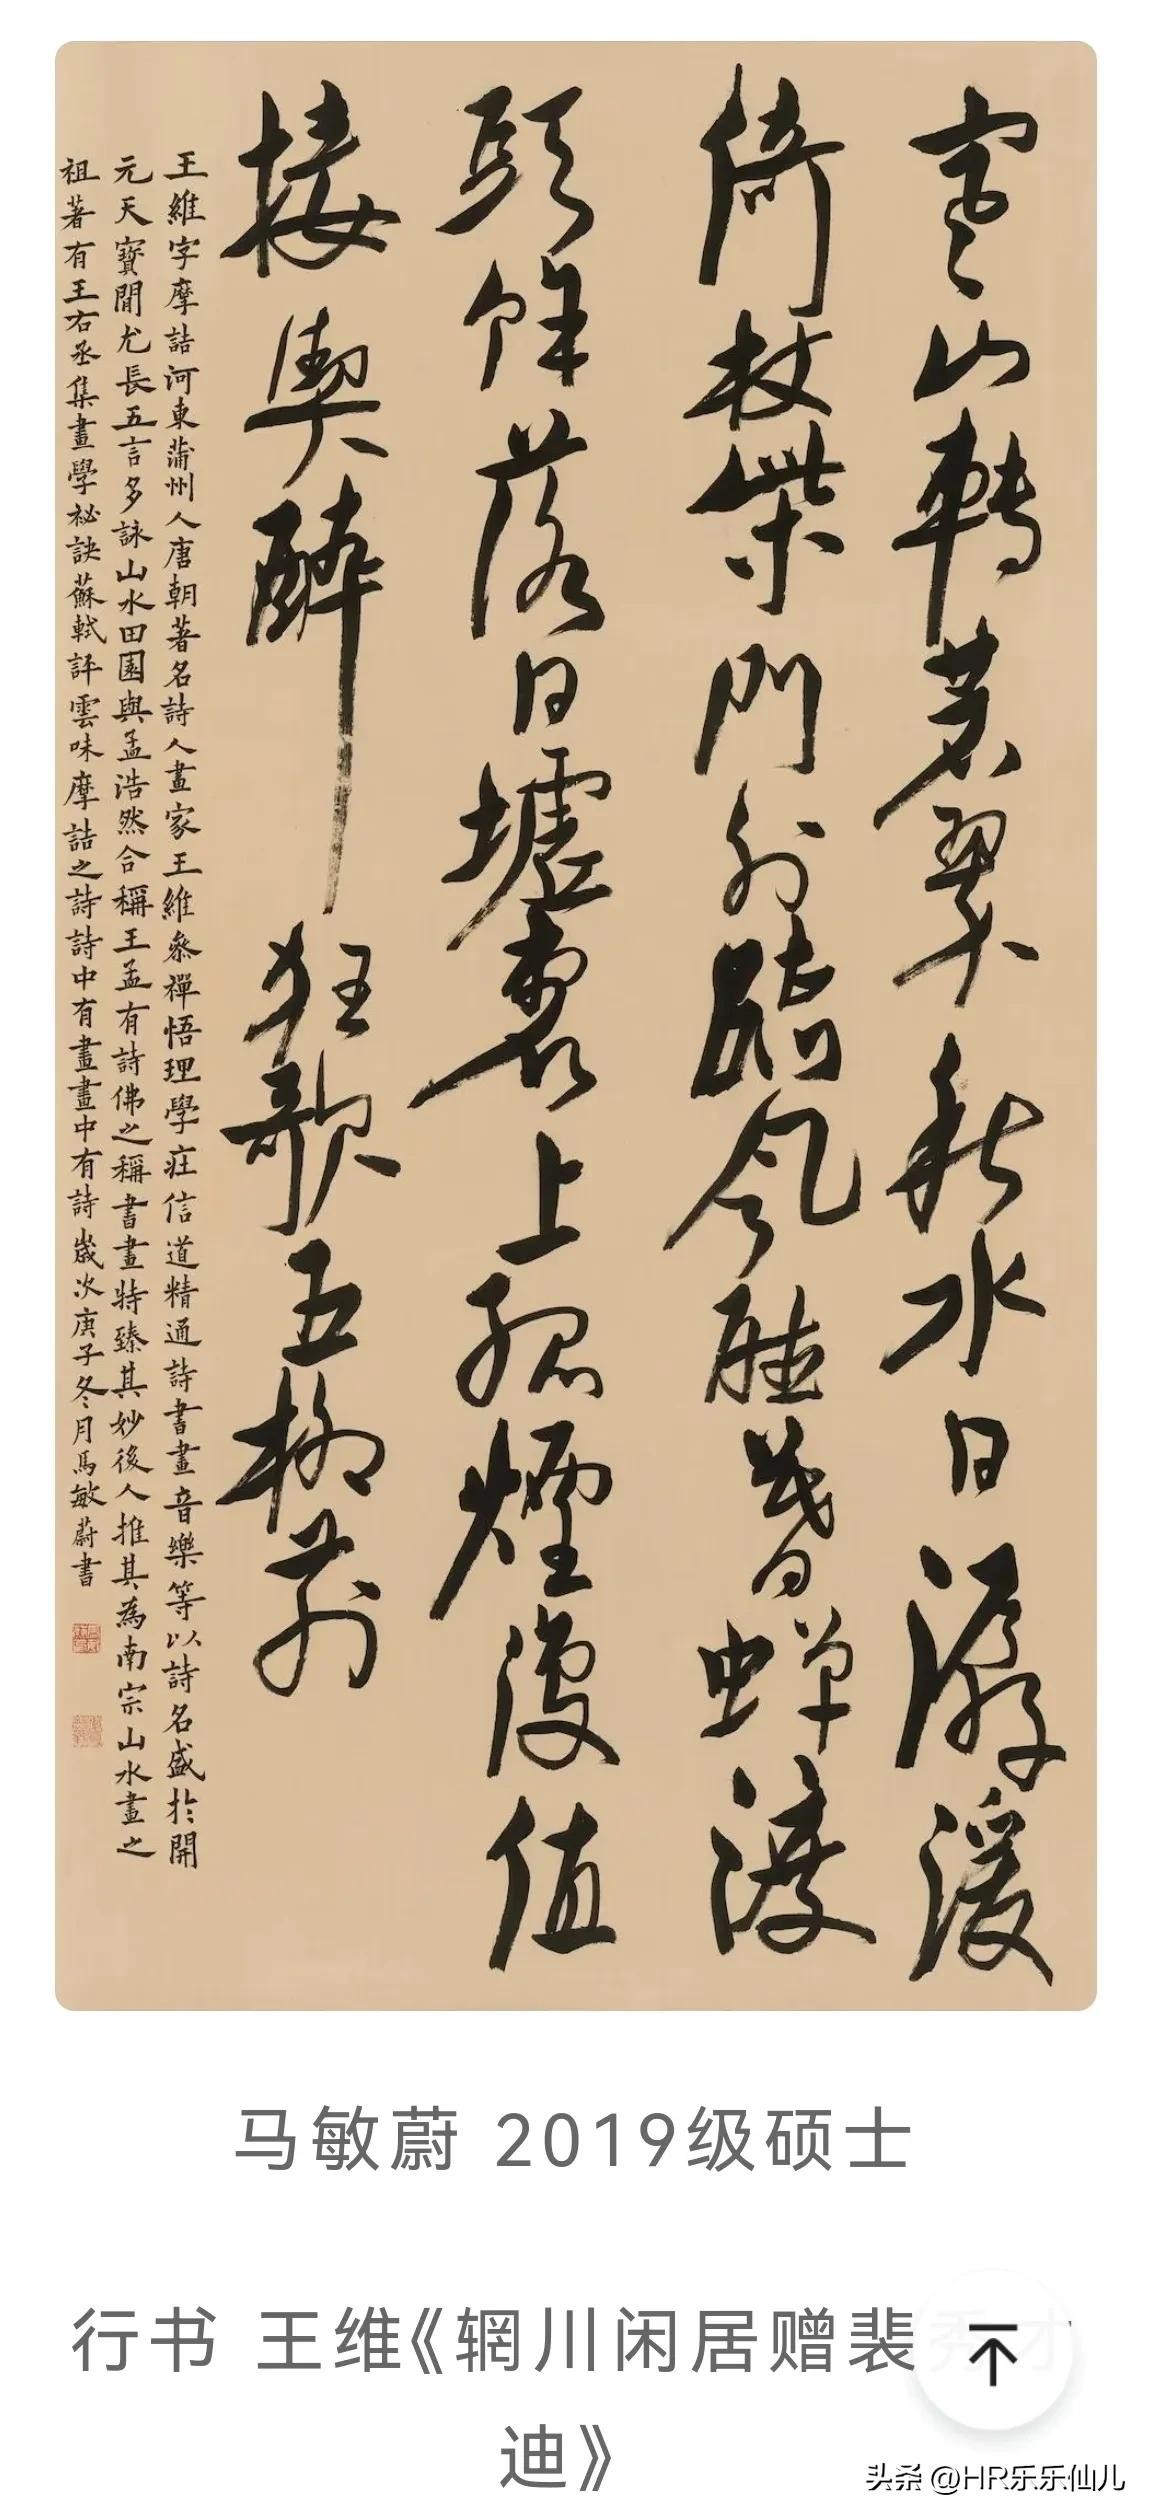 寒山轉蒼翠秋水日潺湲
倚杖柴門外臨風聽暮蟬渡
頭餘落日墟裏上孤煙復值
接輿醉狂歌五柳前
王維字摩詰河東蒲州人唐朝著名詩人畫家王維參禪悟理學莊信道精通詩書畫音樂等以詩名盛於開
元天寶間尤長五言多詠山水田園與孟浩然合稱王孟有詩佛之稱書畫特臻其妙後人推其為南宗山水畫之
祖著有王右丞集畫學祕訣蘇軾評雲味摩詰之詩詩中有畫畫中有詩歲次庚子冬月馬敏蔚書
马敏蔚 2019级硕士
行书 王维《辋川闲居赠裴秀才
迪》
头条 @HR乐乐仙儿